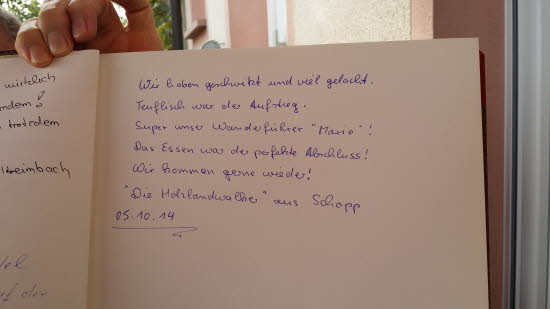 wirklich
trotzdem
Wir haben geschwitzt und viel gelacht.
Teuflisch war der Aufstieg.
Super unser Wanderführer "Mario"!
Das Essen war der perfekte Abschluss!
Wir kommen gerne wieder!
"Die Holzlandwalker" aus Schopp
05.10.14